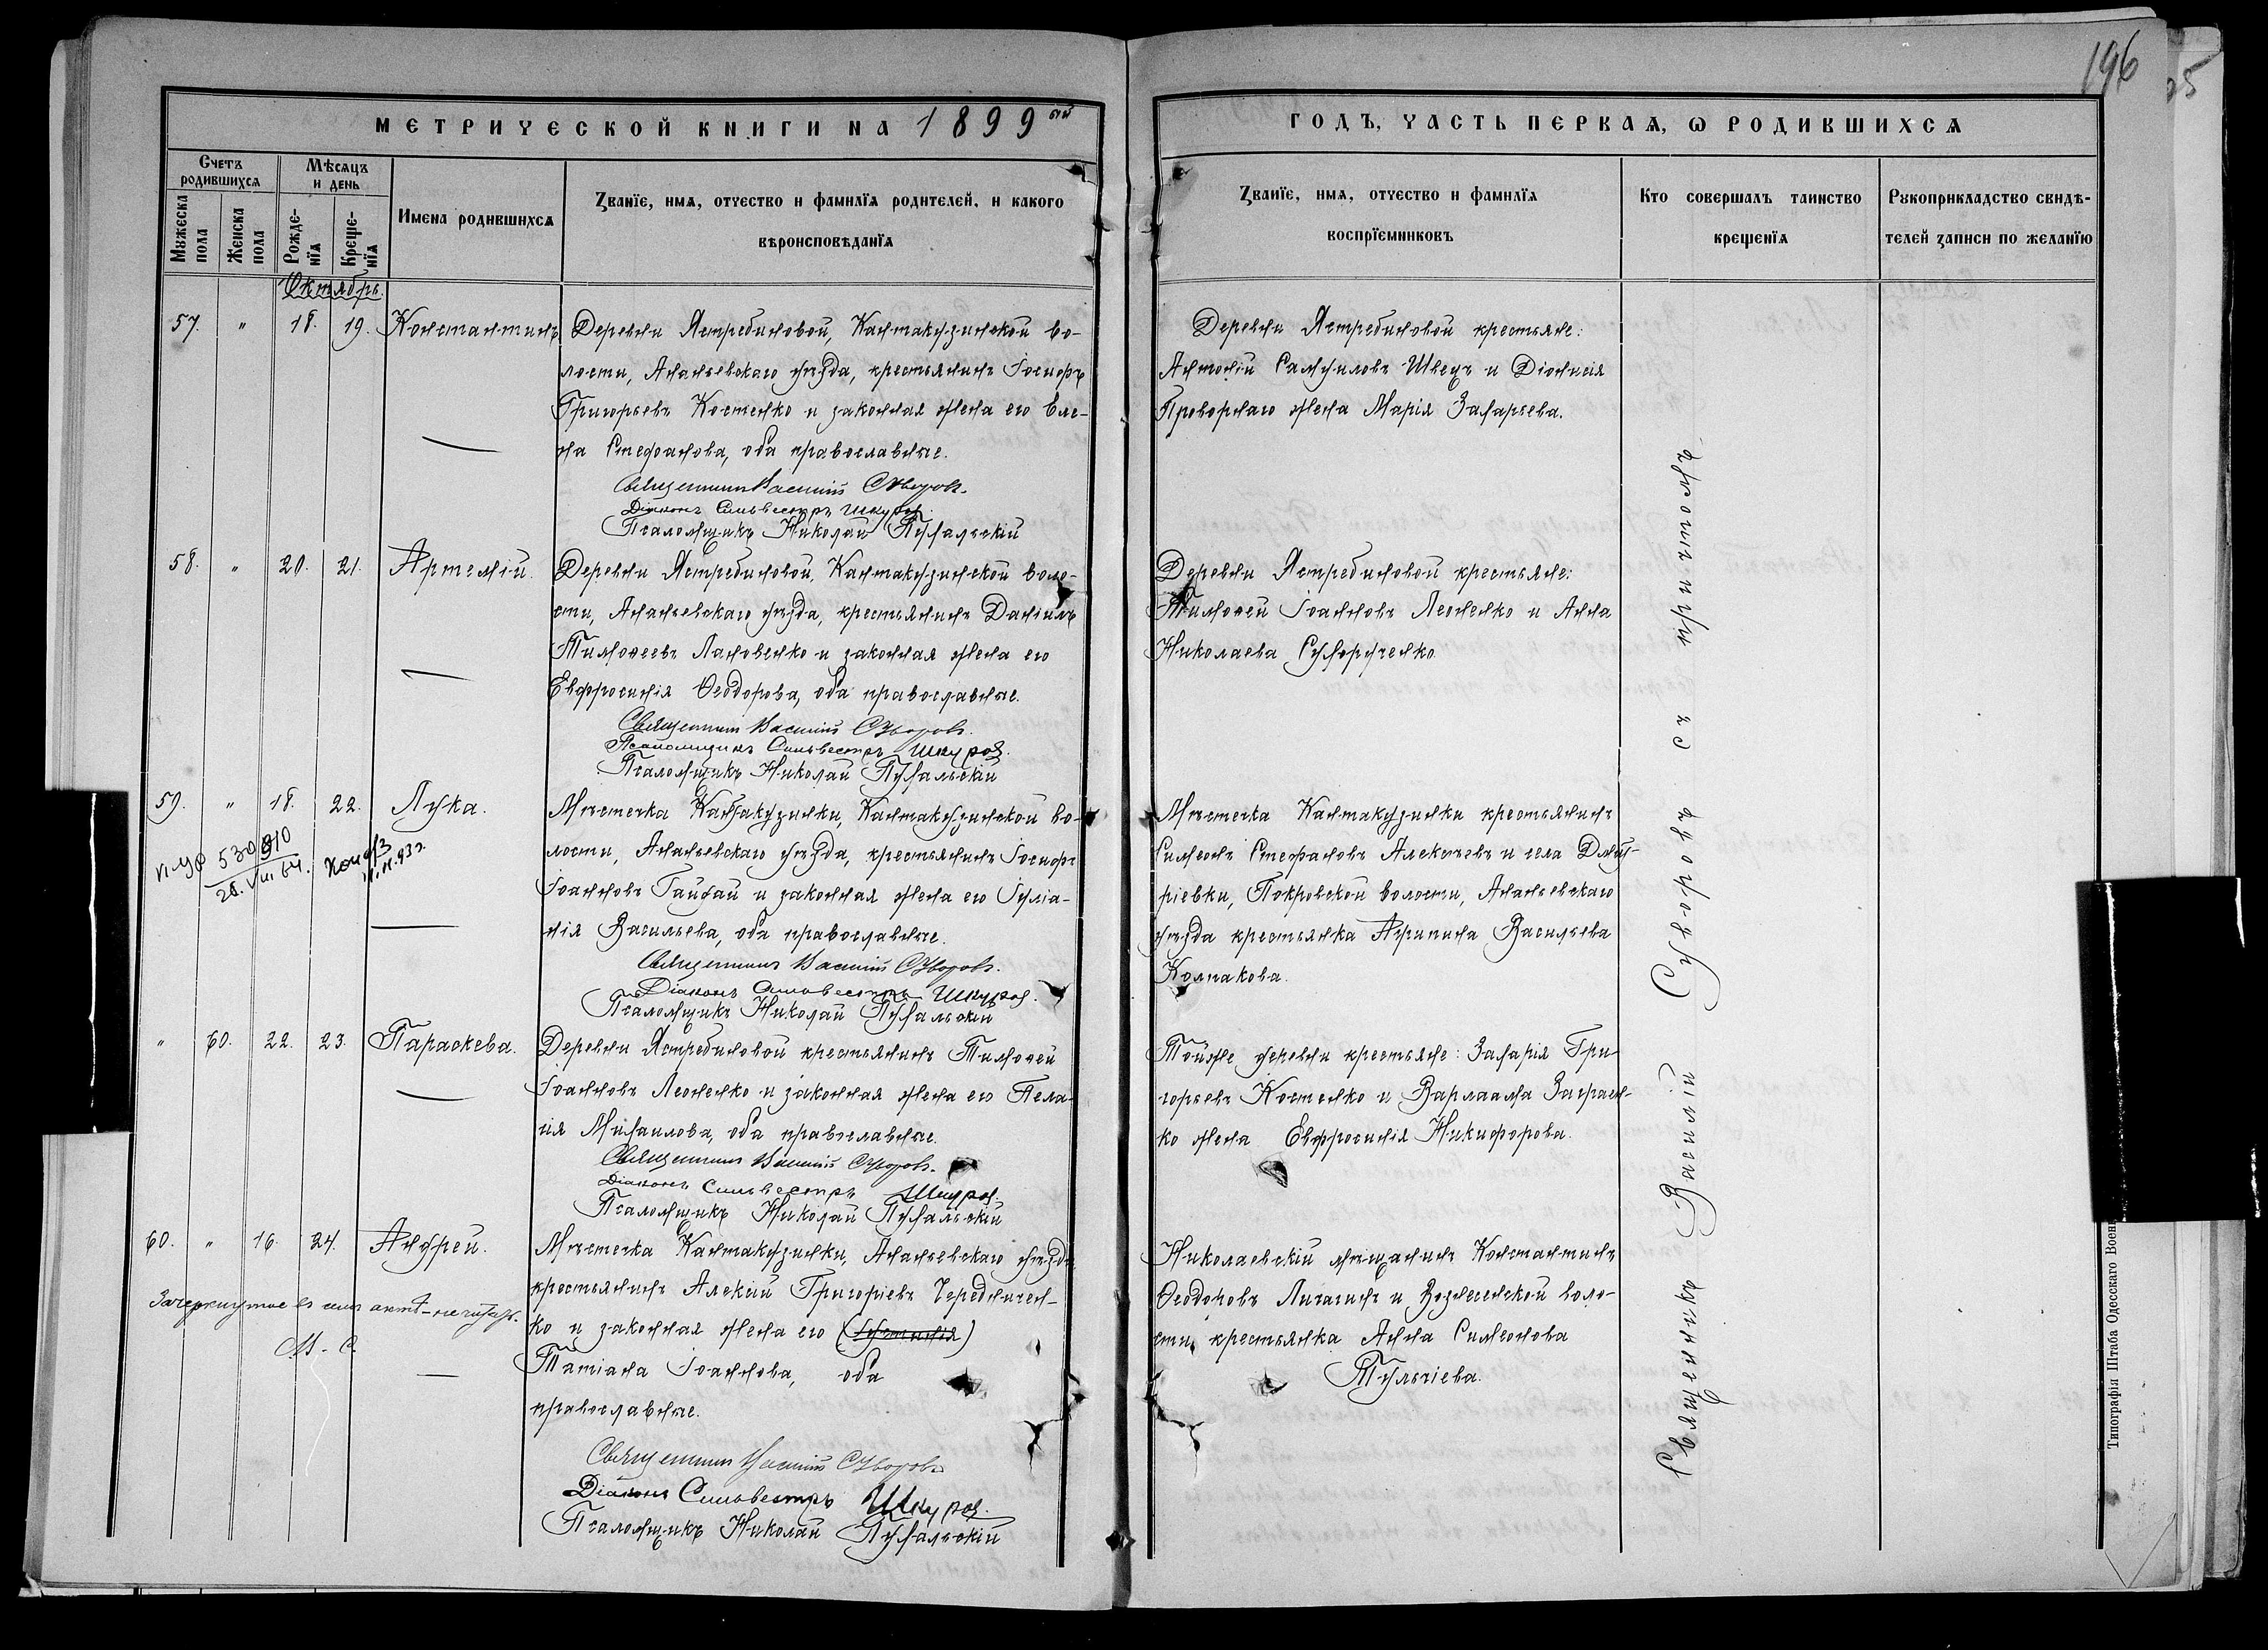 196
25
МЕТРИЧЕСКОЙ КНИГИ НА 1899ый
ГОДЪ, ЧАСТЬ ПЕРВАЯ, Ѡ РОДИВШИХСЯ
Счетъ родившихся
Мѣсяцъ и день
Мужеска пола
Женска пола
Рожде-нїя
Креще-нїя
Имена родившихся
Званїе, имя, отчество и фамилїя родителей, и какого
вѣроисповѣданїя
Званїе, имя, отчество и фамилїя
воспрїемниковъ
Кто совершалъ таинство
крещенїя
Рукоприкладство свидѣ-
телей записи по желанїю
Октябрь.
57. " 18. 19. Константинъ
Деревни Ястребиновой, Кантакузинской во-
лости, Ананьевскаго уѣзда, крестьянинъ Іосифъ
Григорьевъ Костенко и законная жена его Еле-
на Стефанова, оба православные.
Священникъ Василій Суворовъ.
Діаконъ Сильвестръ Шкуров.
Псаломщикъ Николай Пухальскій
Деревни Ястребиновой крестьяне:
Антоній Самуиловъ Швецъ и Діонисія
Проворнаго жена Марія Захарьева.
58. " 20. 21. Артемій.
Деревни Ястребиновой, Кантакузинской воло-
сти, Ананьевскаго уѣзда, крестьянинъ Даніилъ
Тимоѳеевъ Лановенко и законная жена его
Евфросинія Ѳеодорова, оба православные.
Священникъ Василій Суворовъ.
Псаломщикъ Сильвестръ Шкуров.
Псаломщикъ Николай Пухальскій
Деревни Ястребиновой крестьяне:
Тимоѳей Іоанновъ Леоненко и Анна
Николаева Сухорученко.
59. " 18. 22. Лука.
530810
28.VIII 64.
Мѣстечка Кантакузинки, Кантакузинской во-
лости, Ананьевскаго уѣзда, крестьянинъ Іосифъ
Іоанновъ Гайдай и законная жена его Іуліа-
нія Васильева, оба православные.
Священникъ Василій Суворовъ.
Діаконъ Сильвестръ Шкуров.
Псаломщикъ Николай Пухальскій
Мѣстечка Кантакузинки крестьянинъ
Симеонъ Стефановъ Алексѣевъ и села Дмит-
ріевки, Покровской волости, Ананьевскаго
уѣзда крестьянка Агрипина Васильева
Колпакова.
" 60. 22. 23. Параскева.
Деревни Ястребиновой крестьянинъ Тимоѳей
Іоанновъ Леоненко и законная жена его Пела-
гія Михаилова, оба православные.
Священникъ Василій Суворовъ.
Діаконъ Сильвестръ Шкуров.
Псаломщикъ Николай Пухальскій
Тойже деревни крестьяне: Захарія Гри-
горьевъ Костенко и Варлаама Заграен-
ко жена Евфросинія Никифорова.
60. " 16. 24. Андрей.
Зачеркнутое въ семъ актѣ - не читать.
Мѣстечка Кантакузинки, Ананьевскаго уѣзда
крестьянинъ Алексій Григоріевъ Чередничен-
ко и законная жена его (Іустинія)
Татіана Іоаннова, оба
православные.
Священникъ Василій Суворовъ
Діаконъ Сильвестръ Шкуров.
Псаломщикъ Николай Пухальскій
Николаевскій мѣщанинъ Константинъ
Ѳеодоровъ Личагинъ и Вознесенской воло-
сти, крестьянка Анна Симеонова
Тульчіева.
Священникъ Василій Суворовъ съ причтомъ
Типографія Штаба Одесскаго Воен